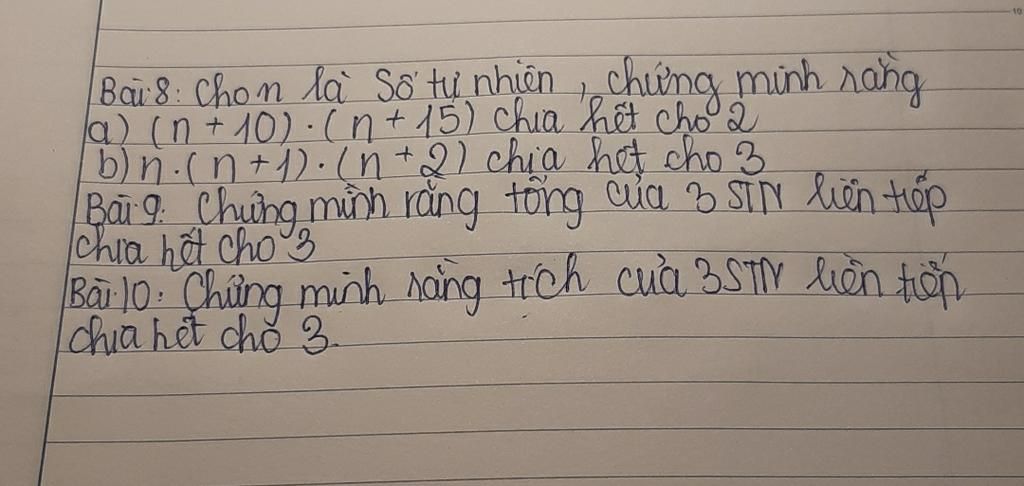 Bài 8: Cho n là số tự nhiên, chứng minh rằng
a) (n + 10) . (n + 15) chia hết cho 2
b) n . (n + 1) . (n + 2) chia hết cho 3
Bài 9: Chứng minh rằng tổng của 3 STN liên tiếp
chia hết cho 3
Bài 10: Chứng minh rằng tích của 3 STN liên tiếp
chia hết cho 3.